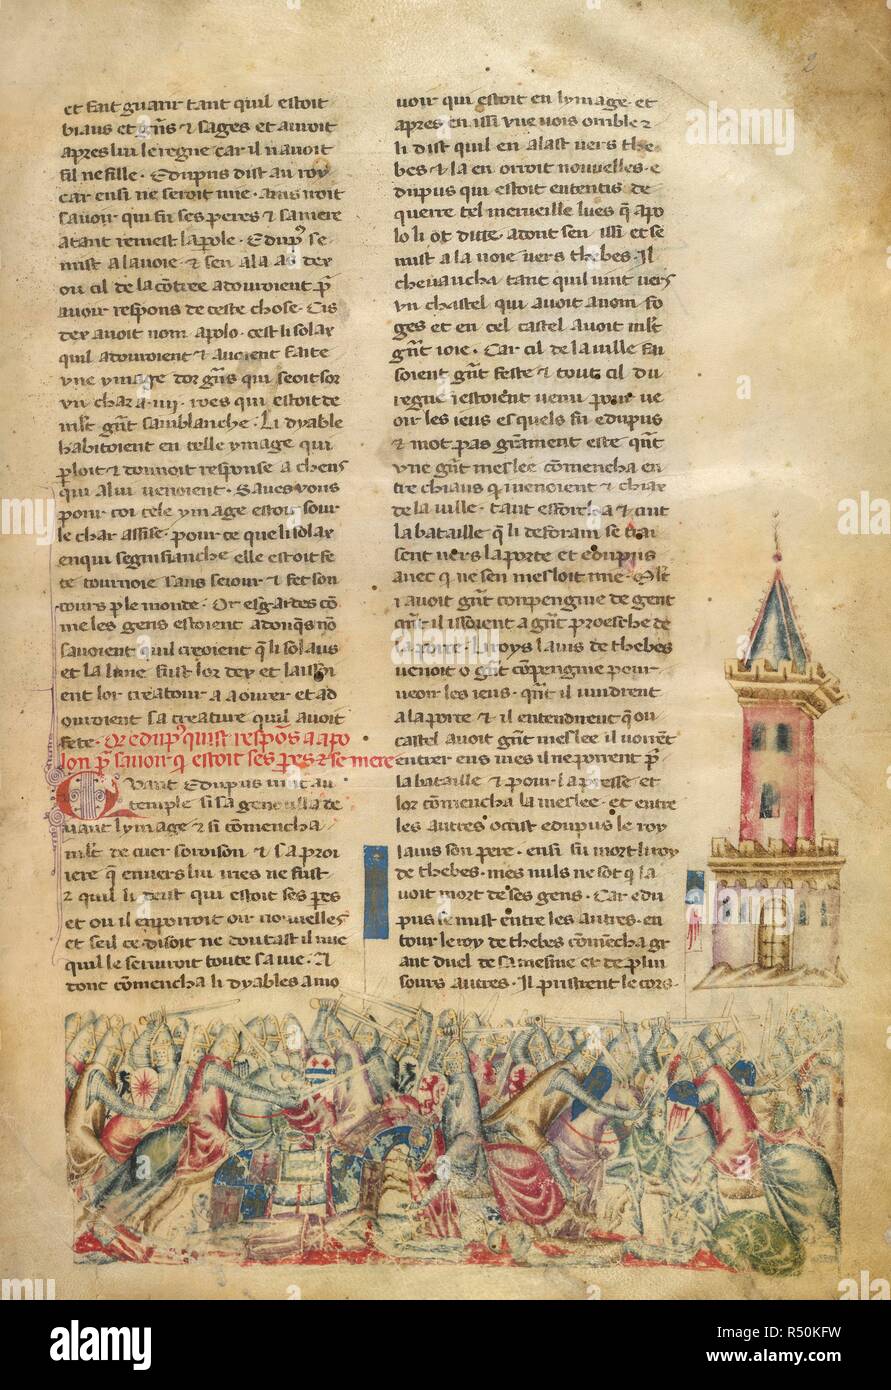 2
et fait guarir tant quil estoit
biaus et gñs ⁊ sages et auroit
apres lui le regne car il nauoit
fil ne fille · Edupus dist au roy
car ensi ne seroit mie · ains uoit
sauoir qui fu ses peres ⁊ sa mere
atant remest la pole · Edup9 se
mist a la uoie ⁊ sen ala as dex
ou cil de la cõtree adouroient p̃
auoir respons de ceste chose · Cis
dex auoit nom apolo · cest li solax
quil adouroient ⁊ auoient faite
vne ymage dor gñs qui seoit sor
vn char a · iiij · roes qui estoit de
mlt̃ gñt samblanche · Li dyable
habitoient en celle ymage qui
ploit ⁊ donnoit response a cheus
qui a lui uenoient · Saues vous
pour coi cele ymage estoit sour
le char assise · pour ce que li solax
en qui segnifianche elle estoit fe
te tournoie sans seiour ⁊ fet son
cours p le monde · Or esgardes cõ
me les gens estoient adonq̃s nõ
sauoient quil creoient q̃ li solaus
et la lune fust lor dex et laissoi
ent lor creatour a aourer et ad
ouroient sa creature quil auoit
fete · Or edup9 quist respõs a apo
lon p̃ sauoir q̃ estoit ses peres ⁊ se mere
Quant Edupus uint au
temple si sa genoulla de
uant lymage ⁊ si cõmencha
mlt̃ de cuer soroison ⁊ sa proi
iere q̃ enuers lui mes ne fust
⁊ quil li deist qui estoit ses p̃es
et ou il enporroit oir nouuelles
et seil ce disoit ne doutast il mie
quil le seruiroit toute sa uie · A
donc cõmencha li dyables a mo
uoir qui estoit en lymage · et
apres en issi vne uois orrible ⁊
li dist quil en alast uers the
bes ⁊ la en orroit nouuelles · e
dupus qui estoit ententis de
querre tel merueille lues q̃ apo
lo li ot ditte · adont sen issi et se
mist a la uoie uers thebes · Il
cheuaucha tant quil uint uers
vn chastel qui auoit a nom fo
ges et en cel castel auoit mlt̃
gñt ioie · Car cil de la uille fai
soient gñt feste ⁊ tout cil du
regne i estoient uenu pour ue
oir les ieus es quels fu edupus
⁊ mot pas gñament este qñt
vne gñt meslee cõmencha en
tre chiaus q̃ uenoient ⁊ chiax
de la uille · tant efforcha ⁊ crut
la bataille q̃ li desoram se trai
sent uers la porte et edupus
auec q̃ ne sen mesloit mie · Mlt̃
i auoit gñt conpengnie de gent
qñt il issoient a gñt proesche de
la porte · Li roys laius de thebes
uenoit o gñt cõpengnie pour
ueoir les ieus · qñt il uindrent
a la porte ⁊ il entendirent q̃ ou
castel auoit gñt meslee il uorrẽt
entrer ens mes il ne porent p̃
la bataille ⁊ pour la presse et
lor cõmencha la meslee · et entre
les autres occist edupus le roy
laius son pere · ensi fu mort li roy
de thebes · mes nuls ne sot q̃ la
uoit mort de ses gens · Car edu
pus se mist entre les autres · en
tour le roy de thebes cõmẽcha gr
ant duel de sa mesme et de plui
sours autres · Il pristrent le cors ·
alamy
Image ID: R50KFW
www.alamy.com